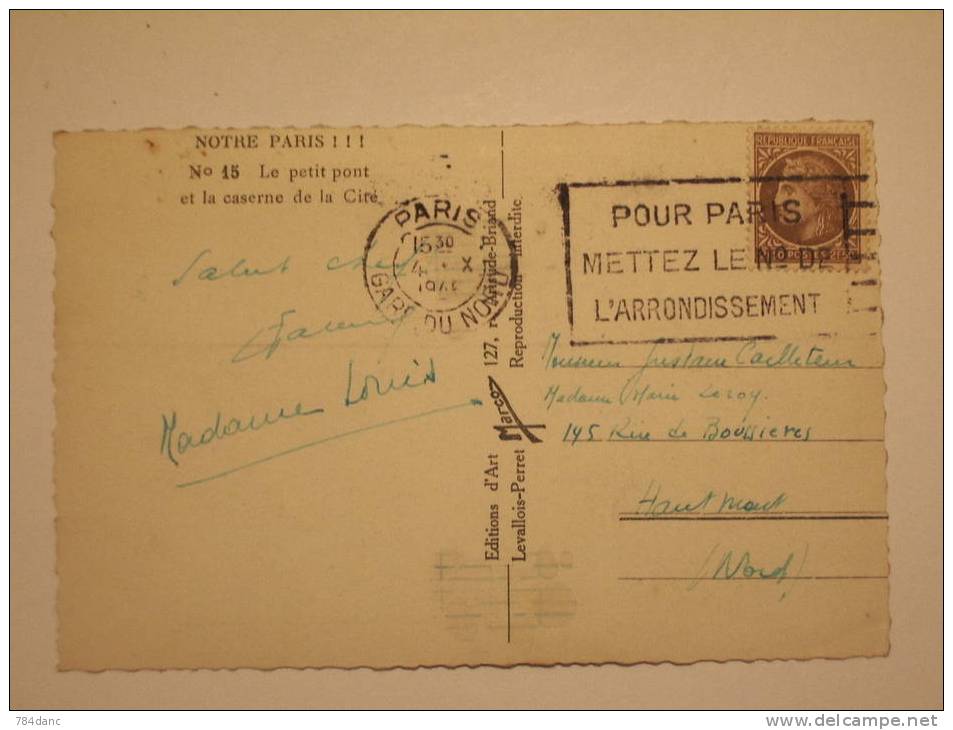 NOTRE PARIS ! ! !
No 15 Le petit pont
et la caserne de la Cité
Salut
Madame Louis
PARIS
15 30
4 X
GARE DU NORD
POUR PARIS
METTEZ LE No DE
L'ARRONDISSEMENT
REPUBLIQUE FRANÇAISE
POSTES 2F
Editions d'Art Marco 127, r. Aristide-Briand
Levallois-Perret Reproduction interdite
Monsieur Gustave Cailleteau
Madame Marie Leroy.
145 Rue de Boussieres
Hautmont
(Nord)
784danc
delcampe.net